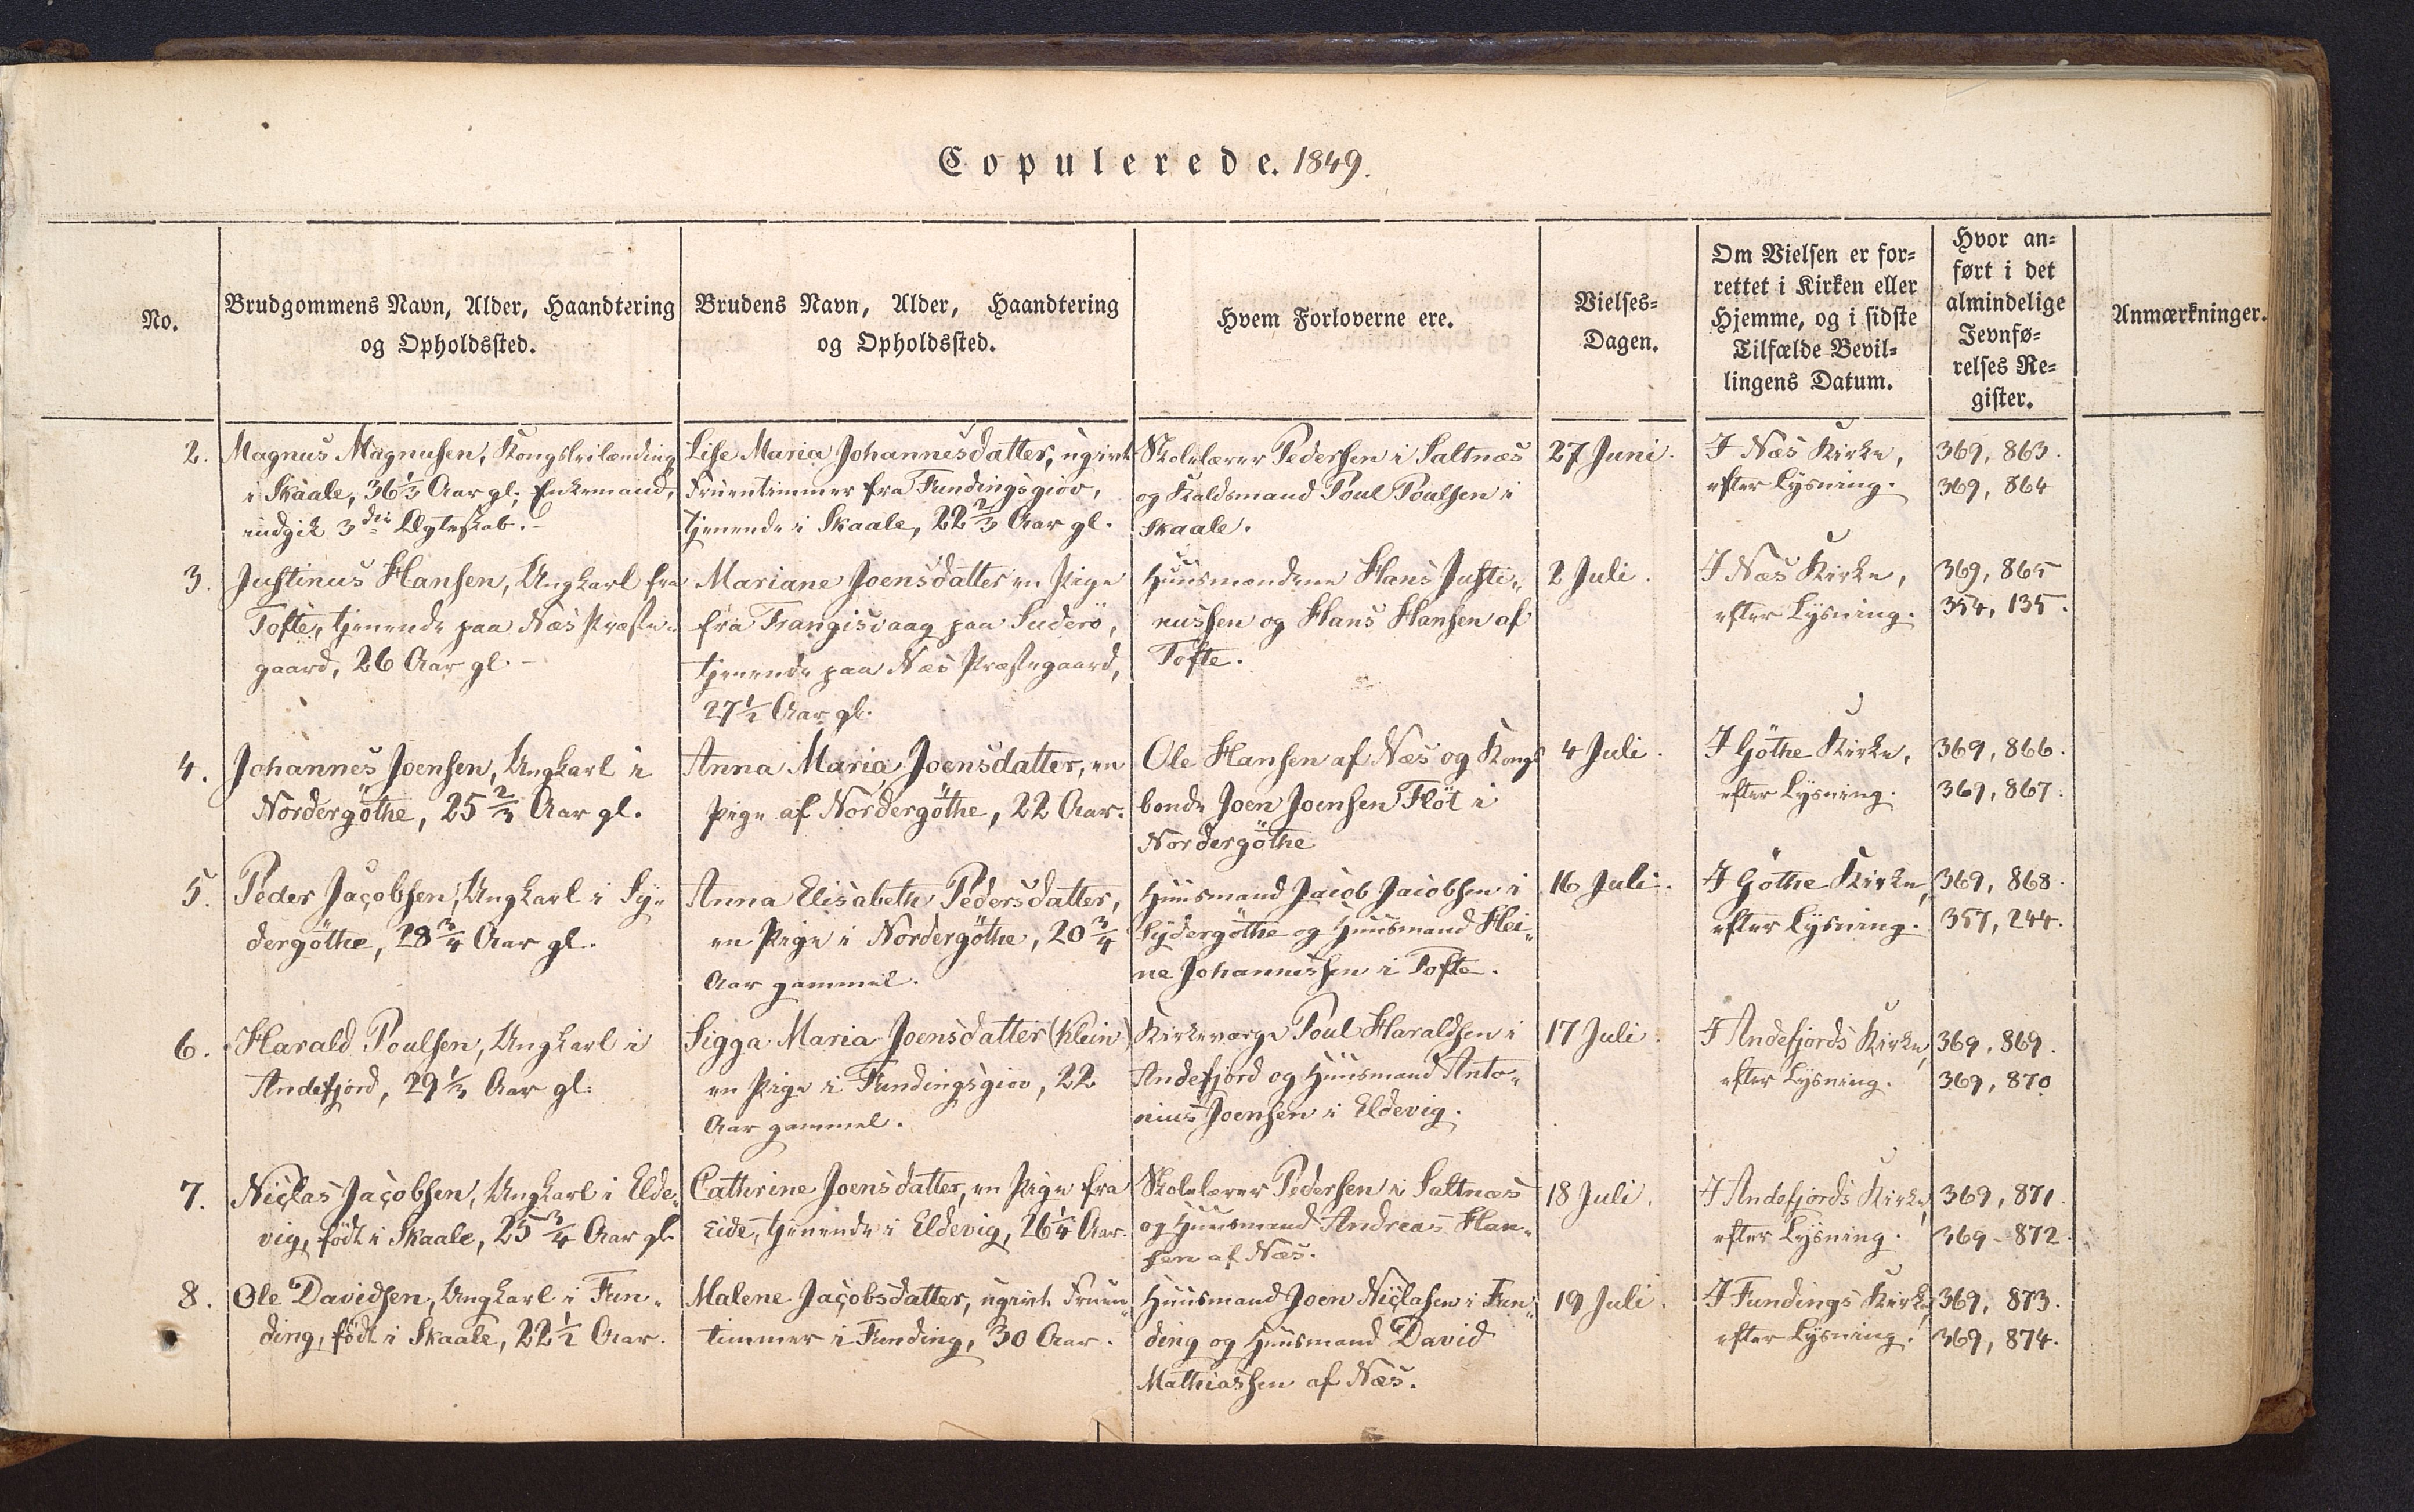 Copulerede. 1849.
No.
Brudgommens Navn, Alder, Haandtering
og Opholdssted.
Brudens Navn, Alder, Haandtering
og Opholdssted.
Hvem Forloverne ere.
Vielses-
Dagen.
Om Vielsen er for-
rettet i Kirken eller
Hjemme, og i sidste
Tilfælde Bevil-
lingens Datum.
Hvor an-
ført i det
almindelige
Jevnfø-
relses Re-
gister.
Anmærkninger.
2.
Magnus Magnusen, Kongsleilænding
i Skaale, 36 1/3 Aar gl. Enkemand,
indgik 3die Ægteskab. -
Lise Maria Johannesdatter, ugivt
Fruentimmer fra Fundingsgiov,
tjenende i Skaale, 22 2/3 Aar gl.
Skolelærer Pedersen i Saltnæs
og Kaldsmand Poul Poulsen i
Skaale.
27 Juni.
I Næs Kirke,
efter Lysning.
369, 863.
369, 864
3.
Justinus Hansen, Ungkarl fra
Tofte, tjenende paa Næs Præste-
gaard, 26 Aar gl. -
Mariane Joensdatter en Pige
fra Trangisvaag paa Suderö,
tjenende paa Næs Præstegaard,
27 1/2 Aar gl.
Huusmændene Hans Justi-
nussen og Hans Hansen af
Tofte.
2 Juli.
I Næs Kirke,
efter Lysning.
369, 865
354, 135.
4.
Johannes Joensen, Ungkarl i
Nordergöthe, 25 2/3 Aar gl.
Anna Maria Joensdatter, en
Pige af Nordergöthe, 22 Aar.
Ole Hansen af Næs og Kongs
bonde Joen Joensen Flöt i
Nordergöthe
4 Juli.
I Göthe Kirke,
efter Lysning.
369, 866.
369, 867.
5.
Peder Jacobsen, Ungkarl i Sy-
dergöthe, 28 3/4 Aar gl.
Anna Elisabeth Pedersdatter,
en Pige i Nordergöthe, 20 3/4
Aar gammel.
Huusmand Jacob Jacobsen i
Sydergöthe og Huusmand Hei-
ne Johannessen i Tofte.
16 Juli.
I Göthe Kirke,
efter Lysning.
369, 868.
357, 244.
6.
Harald Poulsen, Ungkarl i
Andefjord, 29 1/2 Aar gl.
Sigga Maria Joensdatter (Klein)
en Pige i Fundingsgiov, 22
Aar gammel.
Kirkeværge Poul Haraldsen i
Andefjord og Huusmand Anto-
nius Joensen i Eldevig.
17 Juli.
I Andefjords Kirke,
efter Lysning.
369, 869.
369, 870
7.
Niclas Jacobsen, Ungkarl i Elde-
vig, født i Skaale, 25 3/4 Aar gl.
Cathrine Joensdatter, en Pige fra
Eide, tjenende i Eldevig, 26 1/4 Aar.
Skolelærer Pedersen i Saltnæs
og Huusmand Andreas Han-
sen af Næs.
18 Juli.
I Andefjords Kirke,
efter Lysning.
369, 871.
369 - 872.
8.
Ole Davidsen, Ungkarl i Fun-
ding, født i Skaale, 22 1/2 Aar.
Malene Jacobsdatter, ugivt Fruen-
timmer i Funding, 30 Aar.
Huusmand Joen Niclasen i Fun-
ding og Huusmand David
Mathiassen af Næs.
19 Juli.
I Fundings Kirke,
efter Lysning.
369, 873.
369, 874.